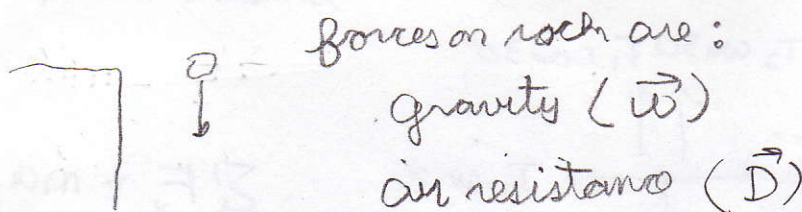 forces on rock are:
gravity (w⃗)
air resistance (D⃗)